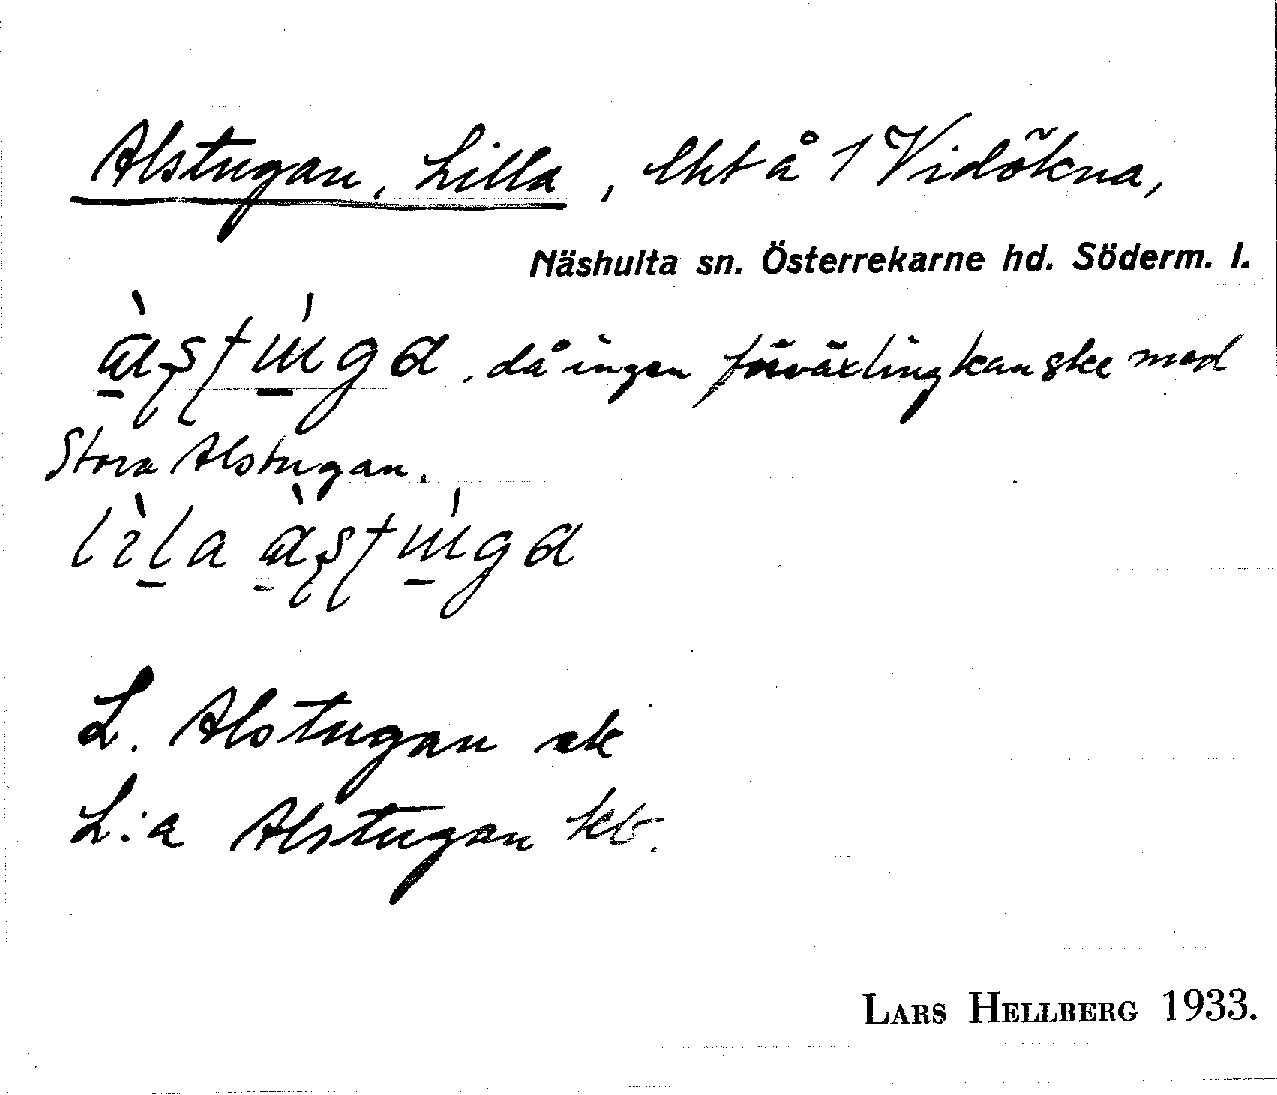 Alstugan, Lilla, lht å 1 Vidökna,
Näshulta sn. Österrekarne hd. Söderm. l.
då ingen förväxling kan ske med
Stora Alstugan.
L. Alstugan ek
L:a Alstugan kb.
LARS HELLBERG 1933.